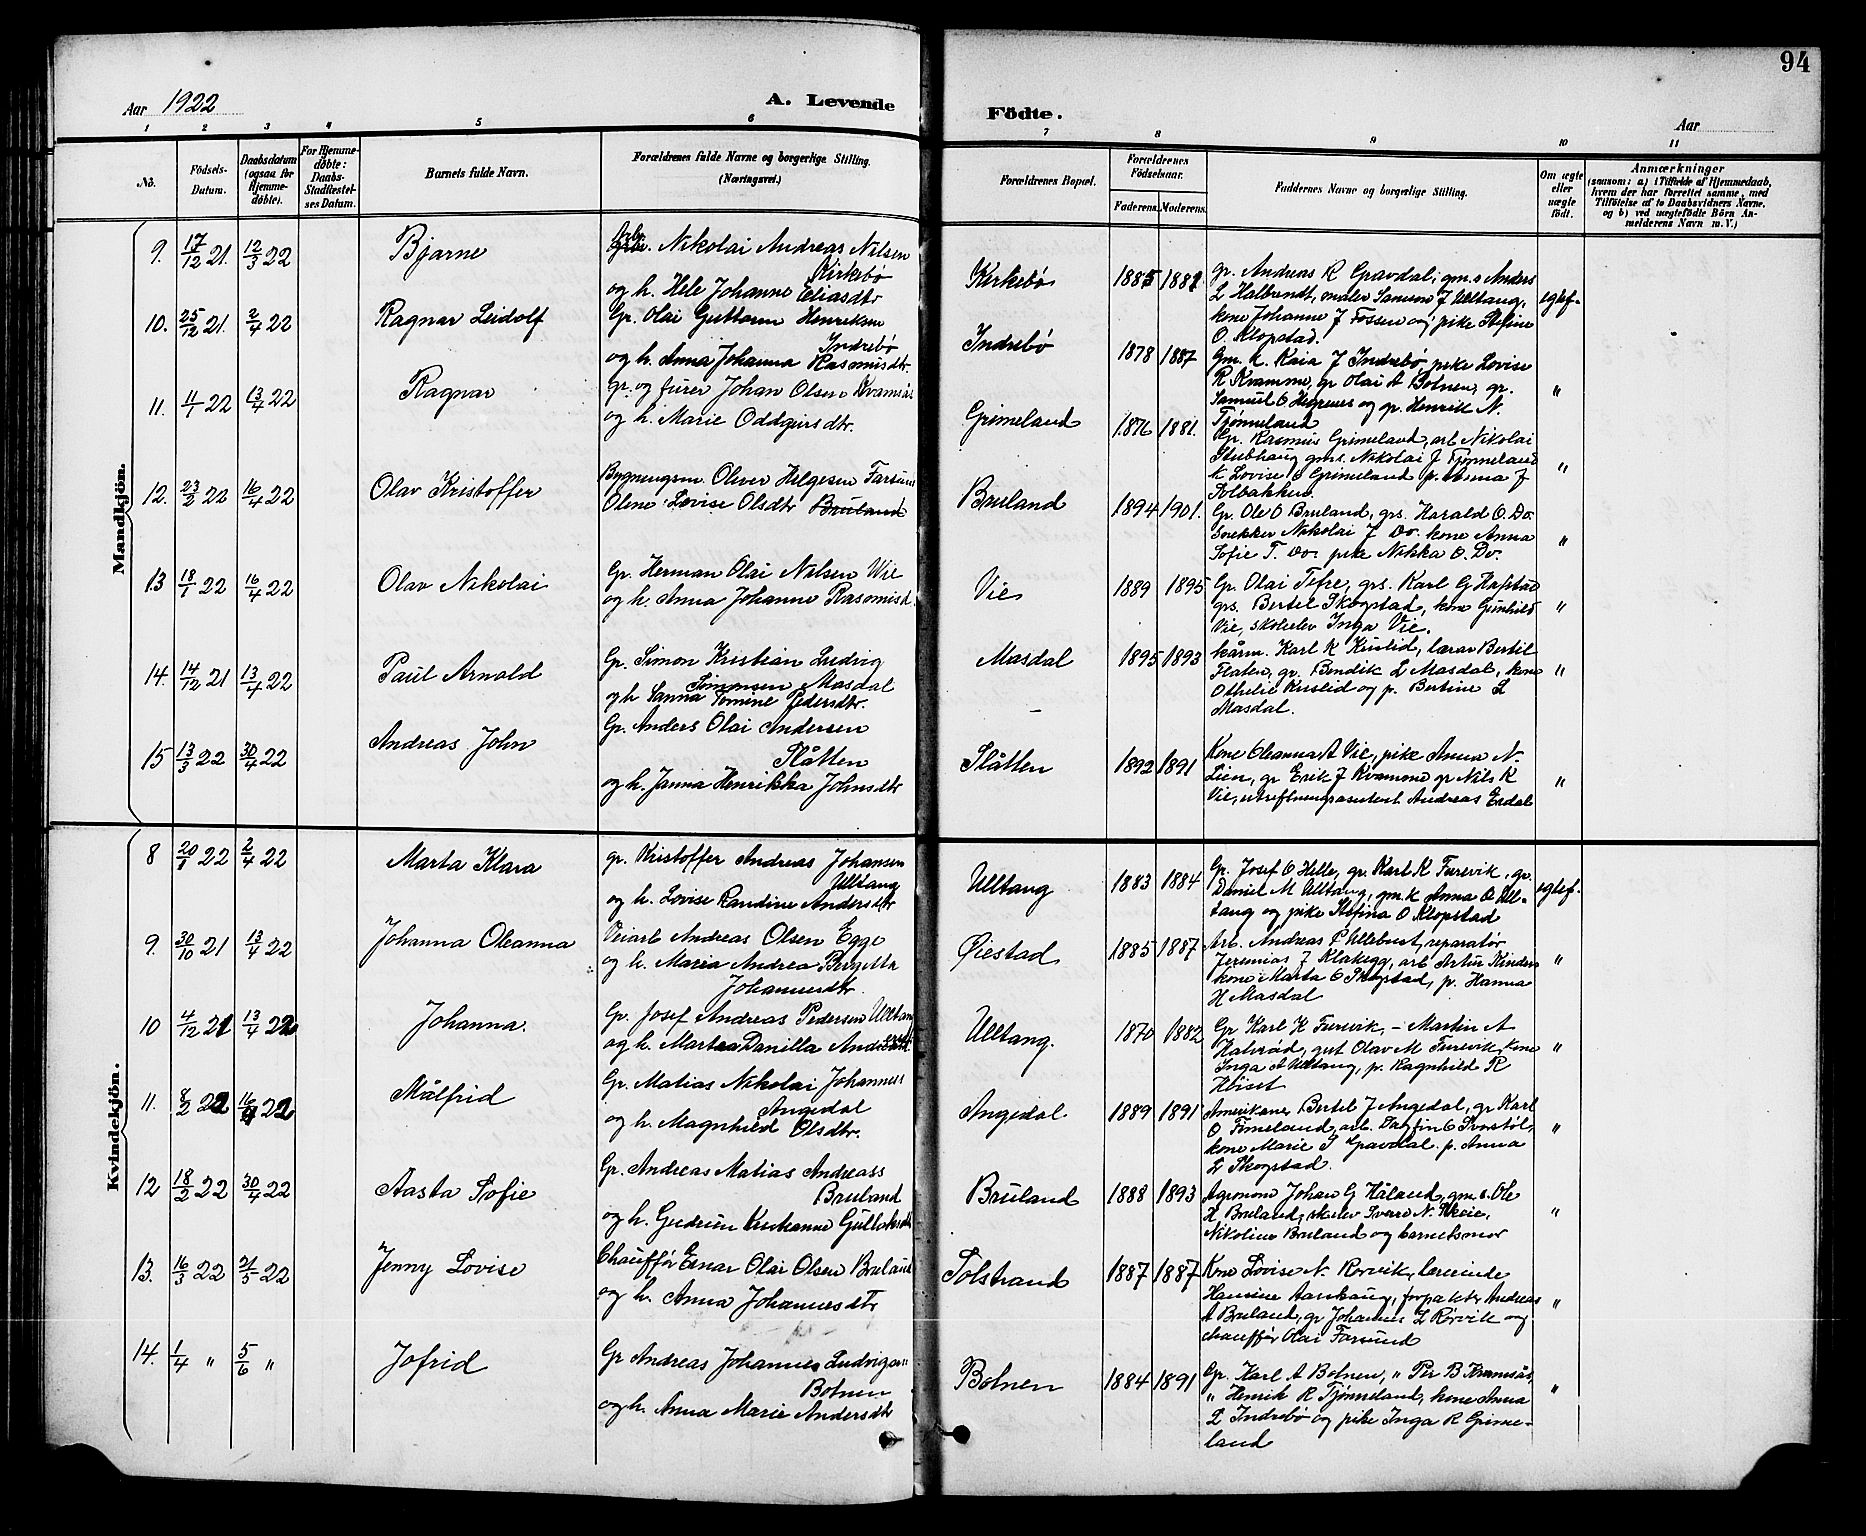 94
Aar 1922
A. Levende
Födte.
Aar
1 2 3 4 5 6 7 8 9 10 11
No.
Födsels-
Datum.
Daabsdatum
(ogsaa for
Hjemme-
döbte).
For Hjemme-
döbte:
Daabs-
Stadfæstel-
ses Datum.
Barnets fulde Navn.
Forældrenes fulde Navne og borgerlige Stilling.
(Næringsvei.)
Forældrenes Bopæl.
Forældrenes
Födselsaar.
Faderens. Moderens.
Faddernes Navne og borgerlige Stilling.
Om ægte
eller
uægte
födt.
Anmærkninger
(saasom: a) i Tilfælde af Hjemmedaab,
hvem der har forrettet samme, med
Tilföielse af to Daabsvidners Navne,
og b) ved uægtefödte Börn An-
melderens Navn m. V.)
Mandkjön.
9. 17/12 21. 12/3 22 Bjarne
Nikolai Andreas Nilsen
Kirkebø
og h. Hele Johanne Eliasdtr
Kirkebø 1885 1881
gr. Andreas R Gravdal, gm. s Anders
L Halbrendt, maler Samson J Ulltang,
kone Johanne J Fossen og pike Stefine
O. Klopstad.
egtef.
10. 25/12 21. 2/4 22 Ragnar Leidolf
Gr. Olai Guttorm Henriksen
Indrebø
og h. Anna Johanna Rasmusdtr.
Indrebø 1878 1887
Gm. k. Kaia J Indrebø, pike Lovise
R Kvamme, gr Olai A Botnen, gr.
Samuel O Hegrenes og gr. Henrik N.
Tjønneland
"
11. 11/1 22 13/4 22 Ragnar
gr. og furer Johan Olsen Kvamsås
og h. Marie Oddgeirsdtr.
Grimeland 1876 1881.
Gr. Rasmus Grimeland, arb Nikolai
Stubhaug gms. Nikolai J Tjønneland
k. Lovise O Grimeland p. Anna J
Solbakken.
"
12. 23/2 22 16/4 22 Olav Kristoffer
Bygningsm. Oliver Helgesen Farsund
Olene Lovise Olsdtr Bruland
Bruland 1894 1901.
Gr. Ole O Bruland, grs. Harald O. Do.
Snekker Nikolai J Do. kone Anna
Sofie T. Do. pike Nikka O. Do.
"
13 18/1 22 16/4 22 Olav Nikolai
Gr. Herman Olai Nilsen Vie
og h. Anna Johanne Rasmusd.
Vie 1889 1895
Gr. Olai Tefre, grs. Karl G Hafstad
grs. Bertel Skogstad, kone Gunhild
Vie, skoleelev Inga Vie.
"
14. 14/12 21 13/4 22 Paul Arnold
Gr. Simon Kristian Ludvig
Simonsen Masdal
og h Sanna Tomine Pedersdtr.
Masdal 1895 1893
Karl K Kuslid, lærar Bertil
Flaten, gr. Bendik L Masdal, kone
Othelie Kuslid og p. Bertine L
Masdal.
"
15 13/3 22 30/4 22 Andreas John
Gr. Anders Olai Andersen
Slåtten
og h. Janna Henrikka Johnsdtr
Slåtten 1892 1891
Kone Oleanna A Vie, pike Anna N.
Lien, gr Erik J Kvamme gr Nils K
Vie, utskiftningsassistent Andreas Erdal
"
Kvindekjön.
8 20/1 22 2/4 22 Marta Klara
gr. Kristoffer Andreas Johansen
Ulltang
og h. Lovise Randine Andersdtr
Ulltang 1883 1884
Gr. Josef O Helle, gr. Karl K Furevik, gr.
Daniel M Ulltang, gm. k Anna O Ull-
tang og pike Stefina O Klopstad
egtef.
9. 30/10 21 13/4 22 Johanna Oleanna
Veiarb Andreas Olsen Egge
og h. Maria Andrea Bergetta
Johannesdtr.
Øiestad 1885 1887
Arb. Andreas P Ullebust, reparatør
Jeremias J Klakegg, arb Artur Kinden
kone Marta O Skogstad, p. Hanna
H Masdal
"
10 4/12 21 13/4 22 Johanna.
Gr. Josef Andreas Pedersen Ulltang
og h. Martea Danilla
Ulltang. 1870 1882
Gr Karl K Furevik, – Martin A
Halvrød, gut Olav M Furevik, kone
Inga A Ulltang, p. Ragnhild R
"
11. 8/2 22 16/4 22 Målfrid
Gr. Matias Nikolai Johannes
Angedal
og h. Magnhild Olsdtr.
Angedal 1889 1891
Amerikaner Bertel J Angedal, gr Karl
O Fimeland, arb. Dagfin O
kone Marie S Gravdal p. Anna
L Skogstad.
"
12 18/2 22 30/4 22 Aasta Sofie
Gr. Andreas Matias Andreass
Bruland
og h. Gudrun Kristianne
Bruland 1888 1893
Agronom Johan G Håland, gm. s. Ole
H. Bruland, skulev Sverre N. Skeie,
Nikoline Bruland og barnets mor
"
13. 16/3 22 21/5 22 Jenny Lovise
Chauffør Einar Olai Olsen Bruland
og h. Anna Johannesdtr
Solstrand 1887 1887
Kone Lovise N. Rørvik, lærerinde
Hansine Aarskaug, forpakter Andreas
A Bruland, gr Johannes L Rørvik og
chauffør Olai Farsund
"
14. 1/4 " 5/6 " Jofrid
Gr Andreas Johannes Ludvigsen
Botnen
og h. Anna Marie Andersdtr
Botnen 1884 1891
Gr. Karl A Botnen, " Per B Kvamsås,
" Henrik R Tjønneland, kone Anna
L Indrebø og pike Inga R Grime-
land
"